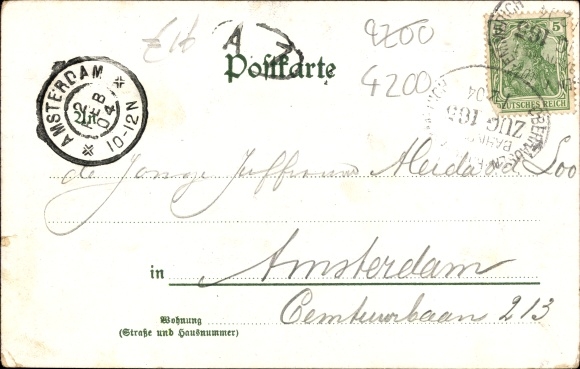 8200
4200
AZ
Postkarte
5
DEUTSCHES REICH
AMSTERDAM
12
FEB
04
10-12N
ZUG 165
BAHN
de Jonge Juffrouw Aleida v d Loo
in Amsterdam
Ceintuurbaan 213
Wohnung
(Straße und Hausnummer)